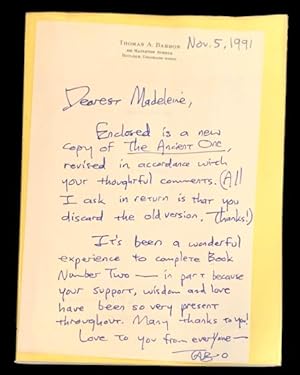 THOMAS A. BARRON
MAPLETON AVENUE
BOULDER, COLORADO
Nov. 5, 1991
Dearest Madeleine,
Enclosed is a new
copy of The Ancient One,
revised in accordance with
your thoughtful comments. (All
I ask in return is that you
discard the old version. Thanks!)
It's been a wonderful
experience to complete Book
Number Two — in part because
your support, wisdom and love
have been so very present
throughout. Many thanks to you!
Love to you from everyone —
TAB